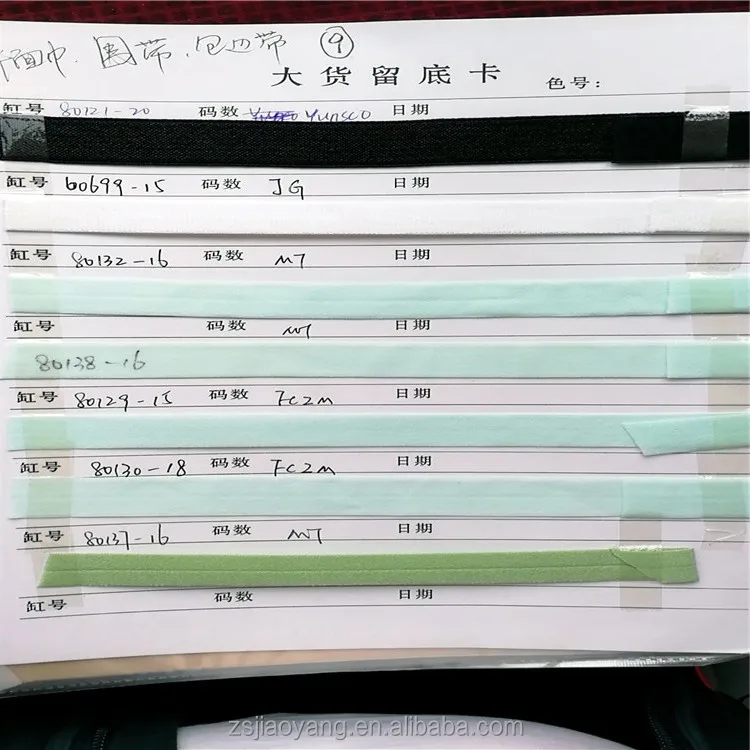 面巾、围带、包边带 ⑨
大货留底卡 色号:
缸号 80121-20 码数 Yunsco 日期
缸号 60699-15 码数 JG 日期
缸号 80132-16 码数 MT 日期
缸号 码数 MT 日期
80138-16
缸号 80129-15 码数 FC2M 日期
缸号 80130-18 码数 FC2M 日期
缸号 80137-16 码数 MT 日期
缸号 码数 日期
zsjiaoyang.en.alibaba.com